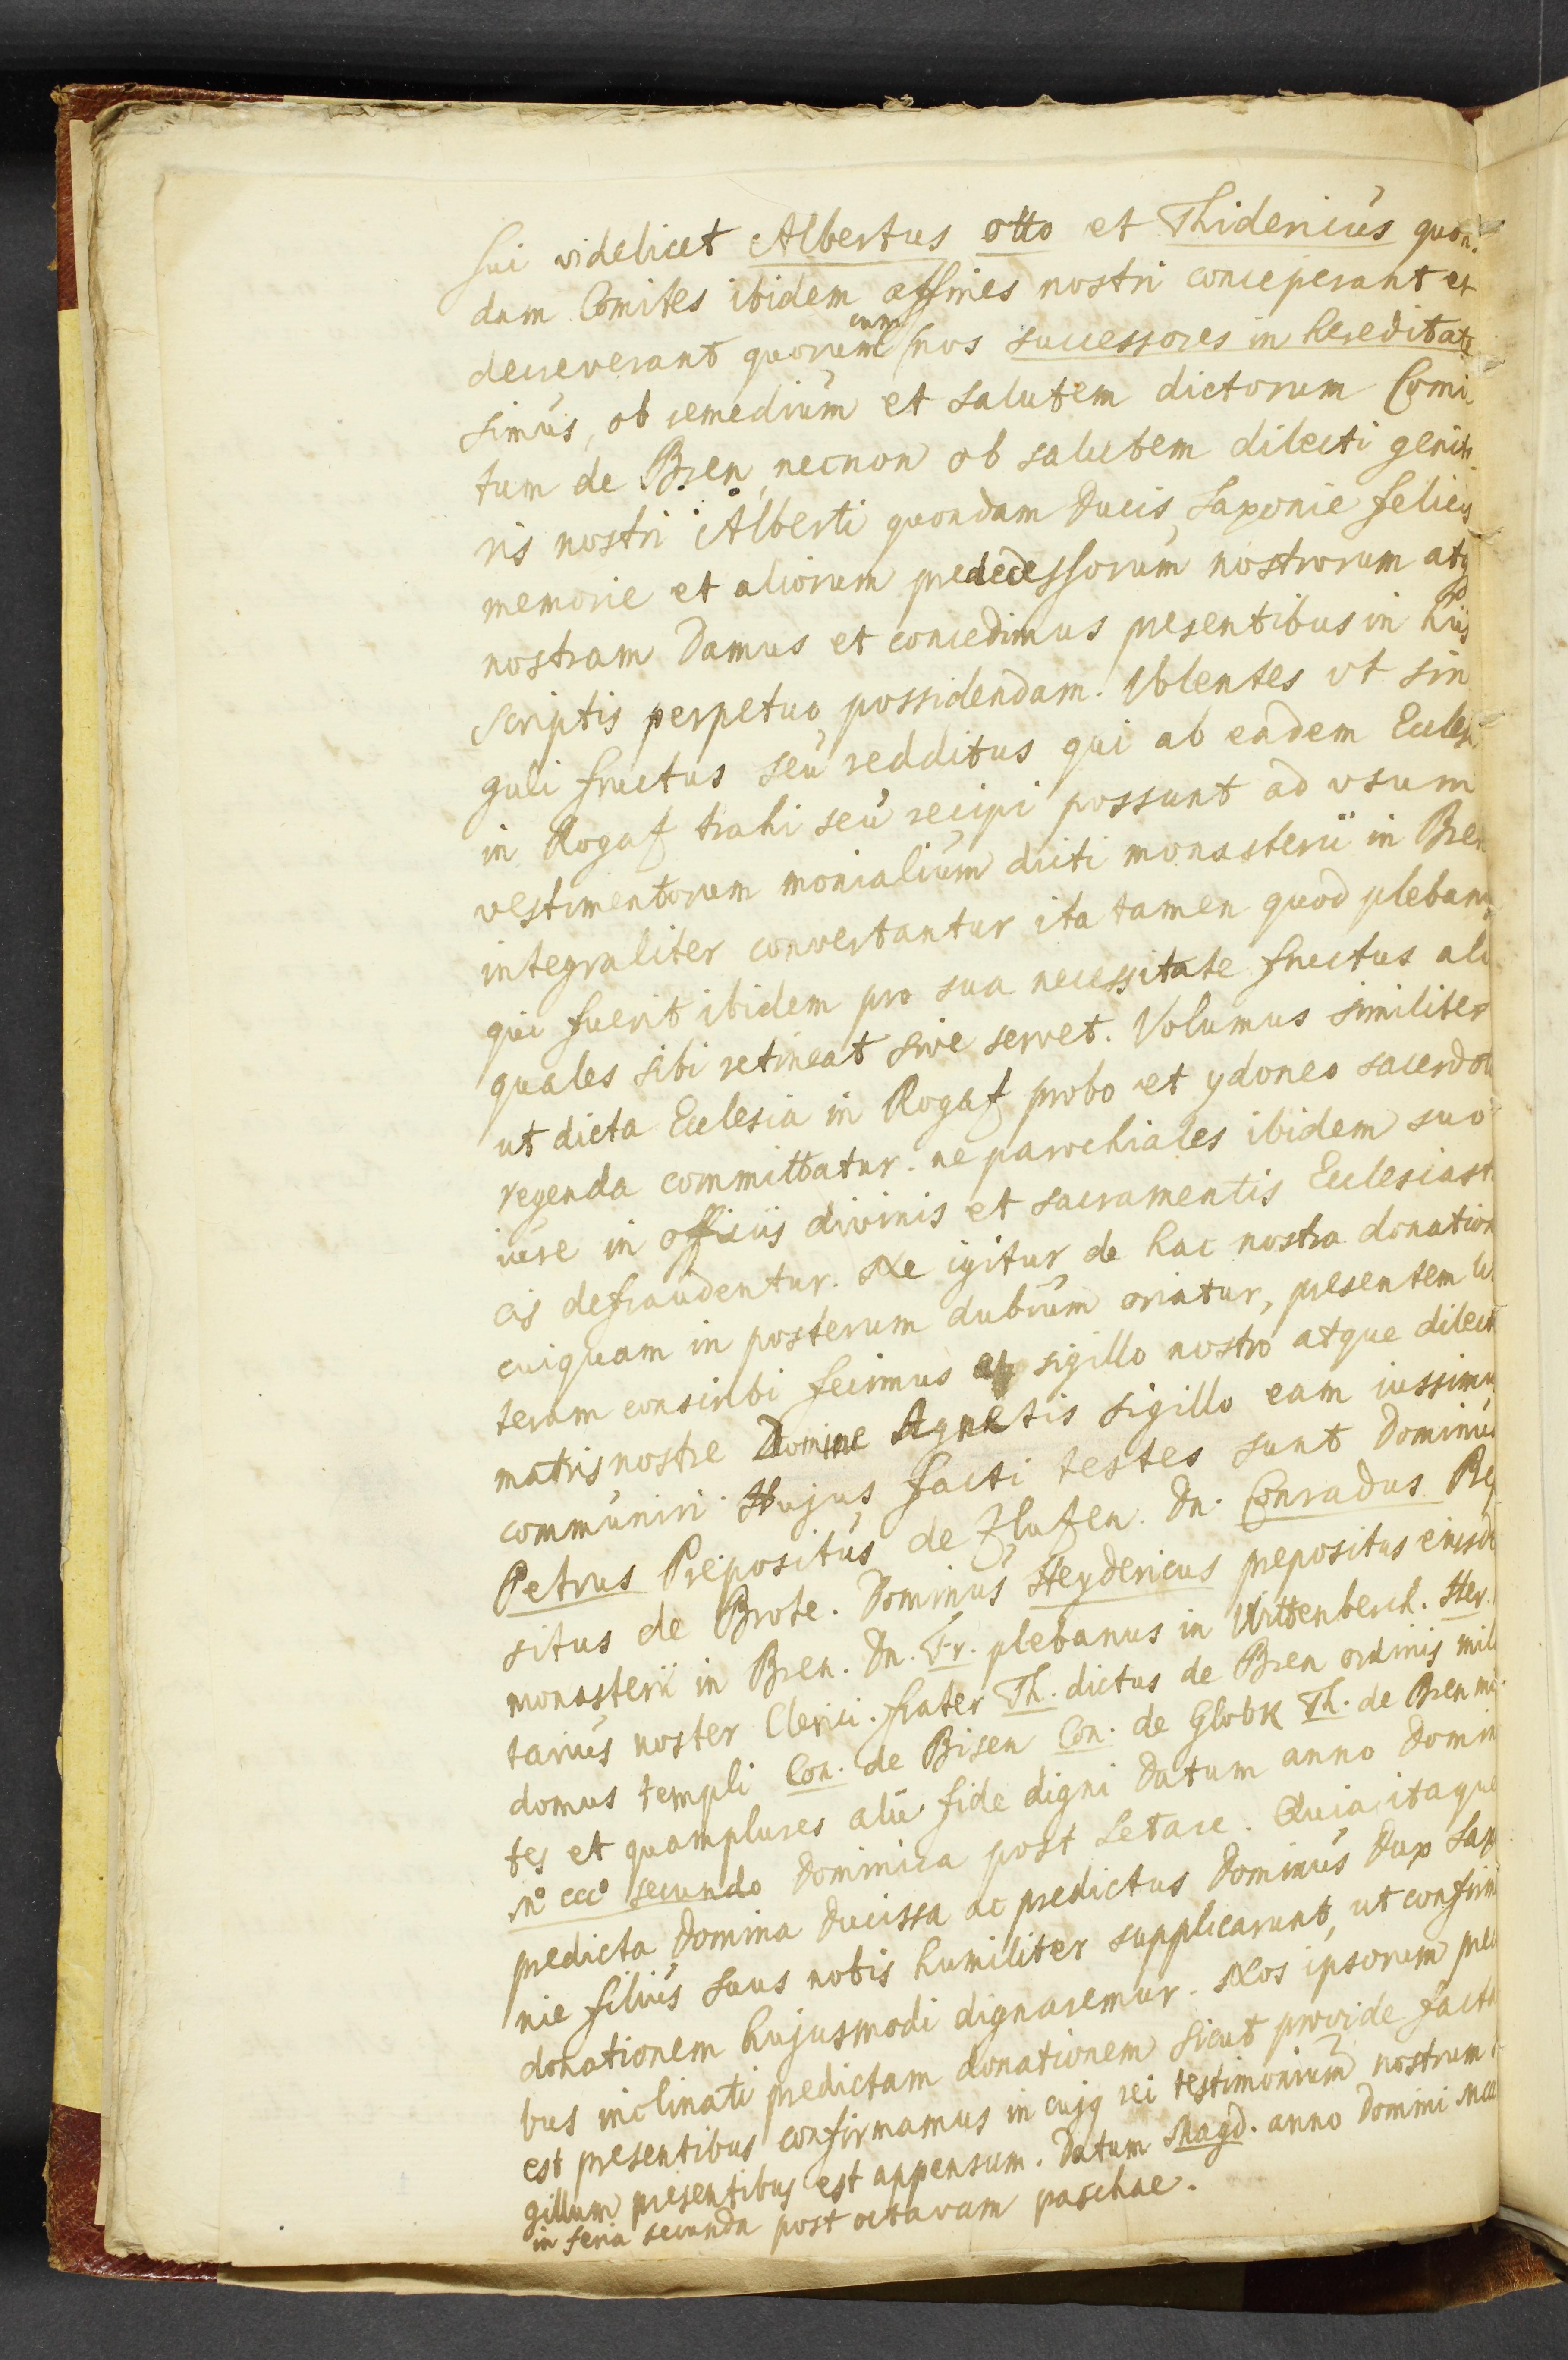 sui videlicet Albertus otto et Thidericus quon-
dam Comites ibidem affines nostri conceperant et
decreverant quorum cum nos successores in hereditate
simus, ob remedium et salutem dictorum Comi-
tum de Bren, necnon ob salutem dilecti genito-
ris nostri Alberti quondam Ducis Saxonie felicis
memorie et aliorum predecessorum nostrorum atq
nostram Damus et concedimus presentibus in hiis
scriptis perpetuo possidendam. Volentes vt sin
guli fructus seu redditus qui ab eadem Eccles.
in Rogaz trahi seu recipi possunt ad vsum
vestimentorum monialium dicti monasterii in Bren
integraliter convertantur ita tamen quod plebanus
qui fuerit ibidem pro sua necessitate fructus ali
quales sibi retineat sive servet. Volumus similiter
ut dicta Ecclesia in Rogaz probo et ydoneo sacerdoti
regenda committatur. ne parochiales ibidem suo
iure in officiis divinis et sacramentis Ecclesiasti
cis defraudentur. Ne igitur de hac nostra donation
cuiquam in posterum dubium oriatur, presentem lit
teram conscribi fecimus sigillo nostro atque dilect
matris nostre Domine Agnetis sigillo eam iussimu
communiri. Hujus facti testes sunt Dominus
Petrus Prepositus de Zluzen. Dn. Conradus Pre
situs de Brote. Dominus Heydericus prepositus eiusde
monasterii in Bren. Dn. Fr. plebanus in Wittenberch. Her.
tarius noster Clerici. frater Th. dictus de Bren ordinis mili
domus templi Con. de Bisen Con. de Globk Th. de Bren mi
tes et quamplures alii fide digni Datum anno Domin
Mo ccco secundo Dominica post Letare. Quia itaque
predicta Domina Ducissa ac predictus Dominus Dux Saxo
nie filius suus nobis humiliter supplicarunt, ut confirm
donationem hujusmodi dignaremur. Nos ipsorum prec
bus inclinati predictam donationem sicut provide facta
est presentibus confirmamus in cujq rei testimonium nostrum
gillum presentibus est appensum. Datum Magd. anno Domini Mccc
in feria secunda post octavam paschae.